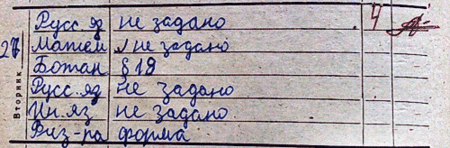 Русс.яз не задано 4
27 Матем не задано
Ботан § 19
Русс.яз не задано
Ин.яз не задано
Физ-ра форма
Вторник